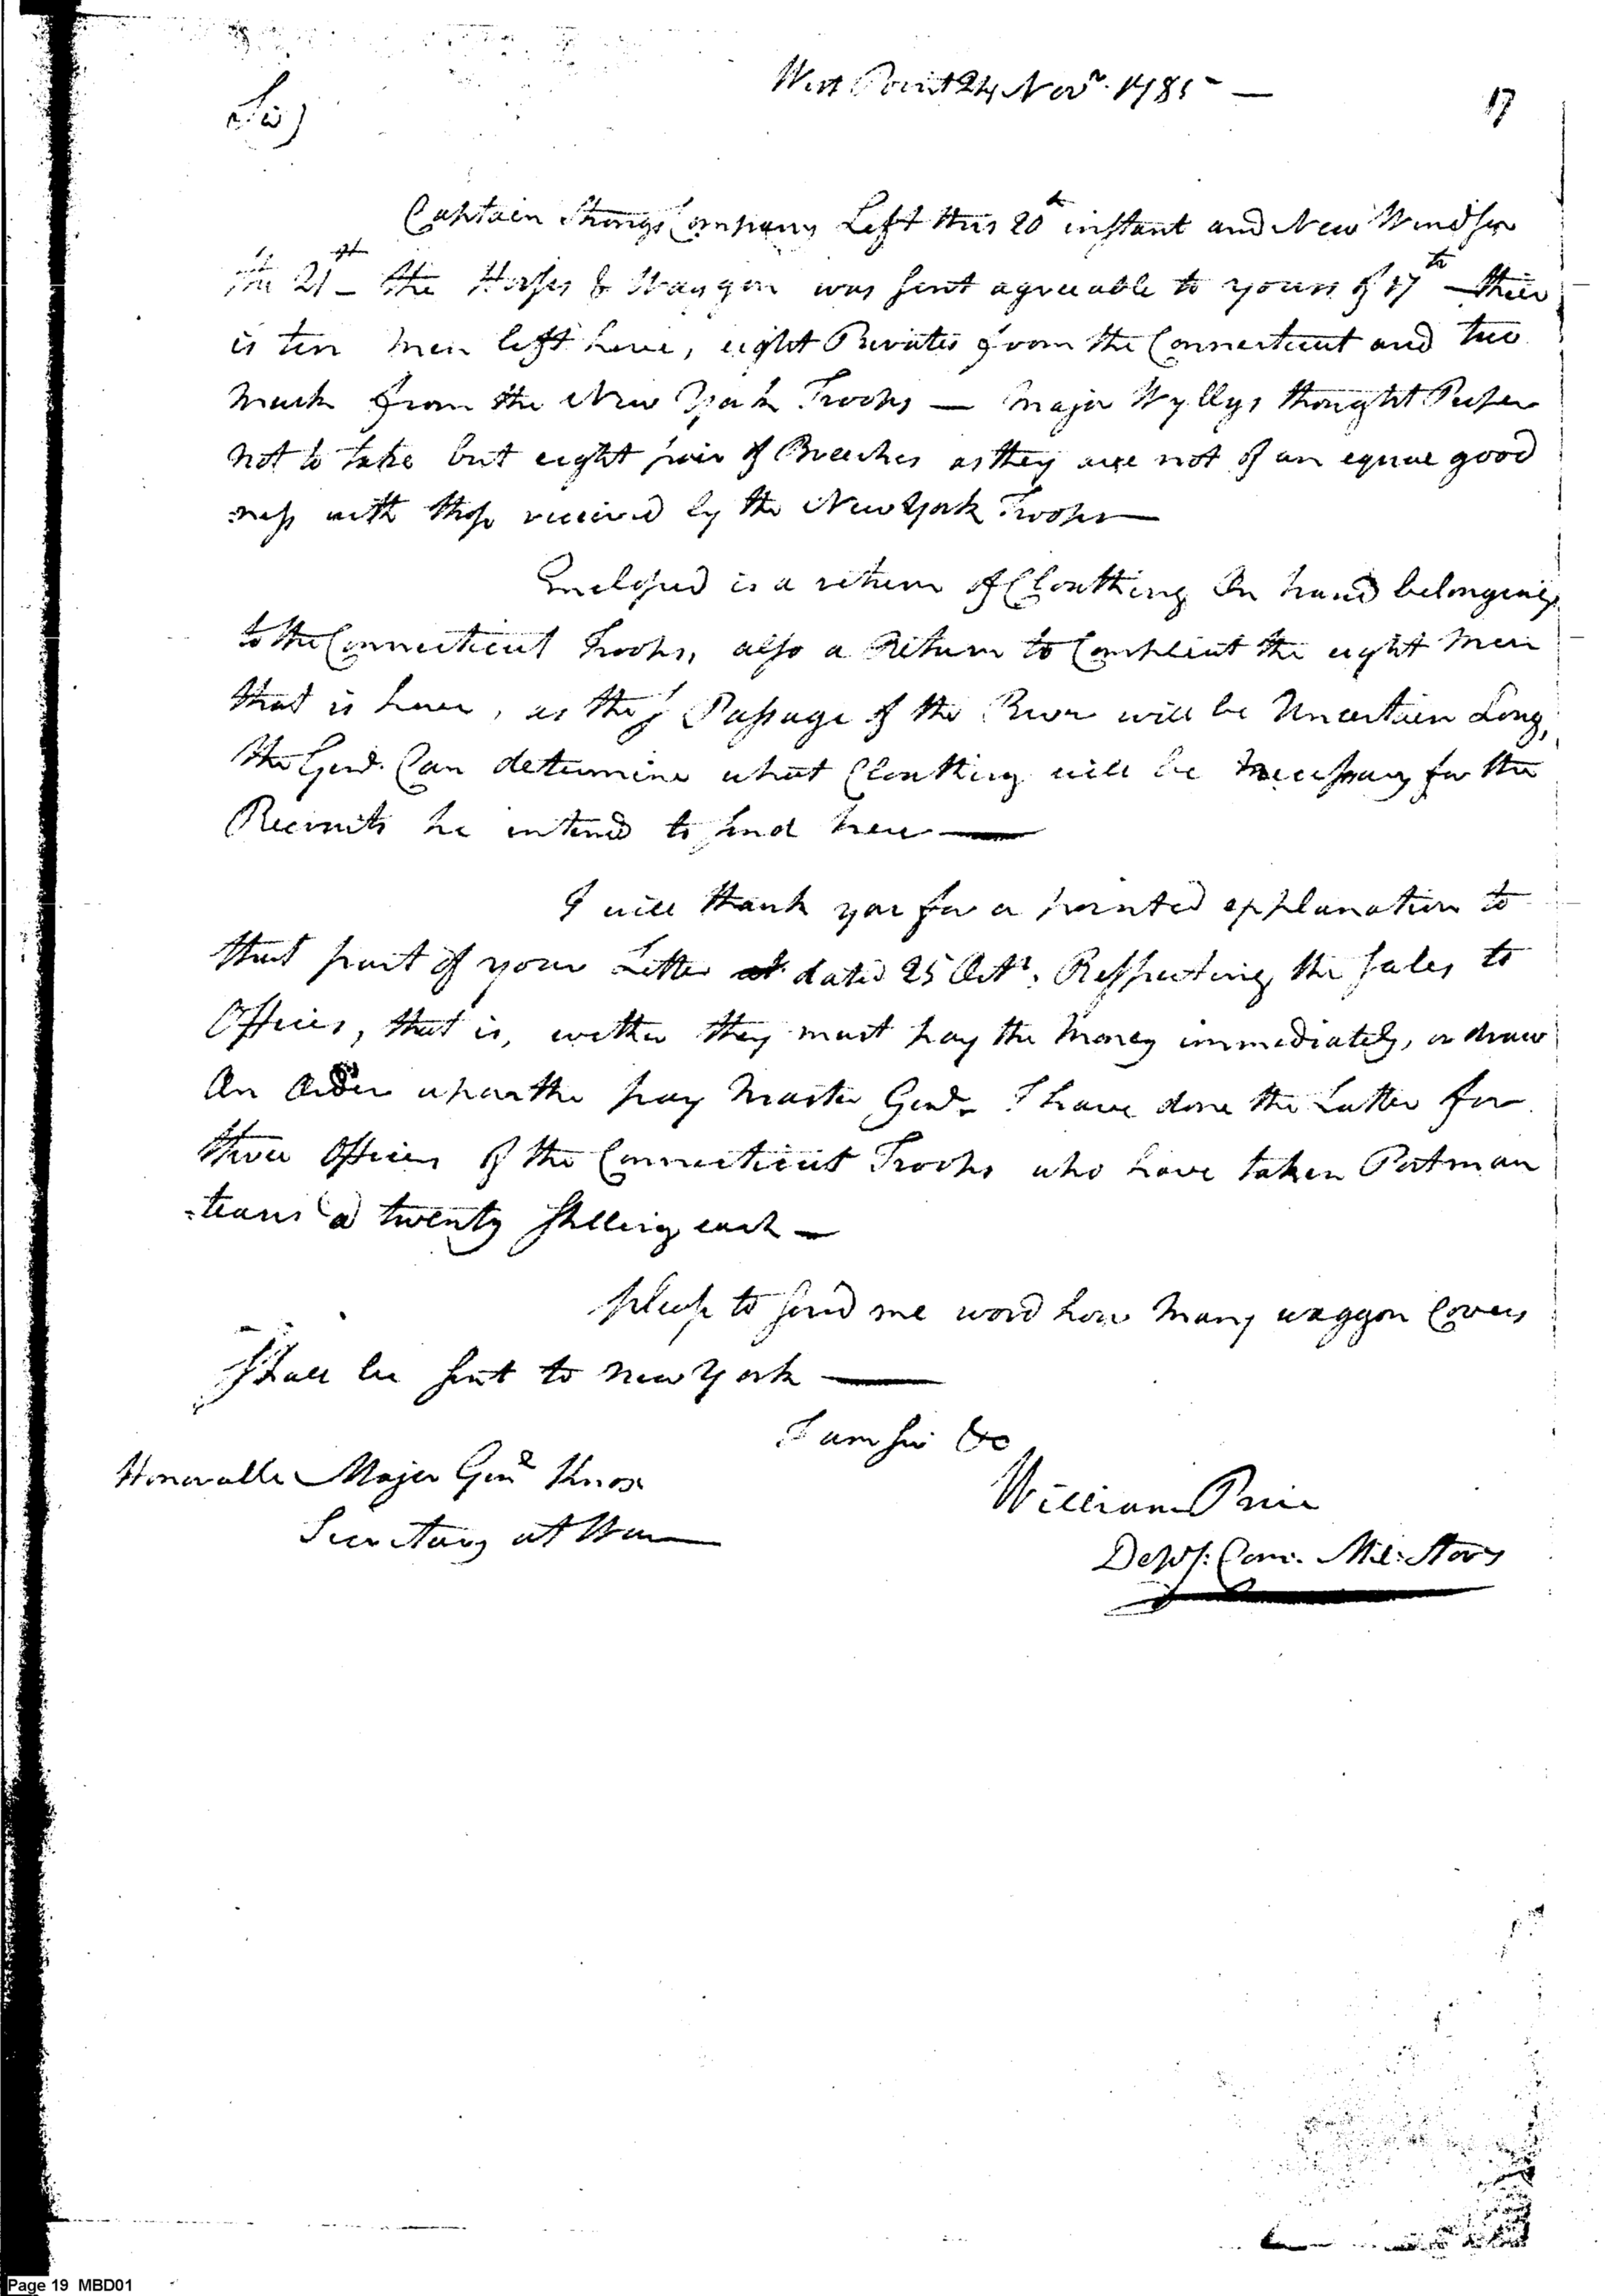 West Point 24 Novr. 1785 —
17
Sir)
Captain Strongs Company Left this 20th instant and New Windsor
the 21st — the Horses & Waggon was sent agreeable to yours of 17th — their
is ten men left here, eight Privates from the Connecticut and two
from the New York Troops — Major Wyllys thought Proper
not to take but eight pair of Breeches as they are not of an equal good
ness with those received by the New York Troops —
Enclosed is a return of Cloathing On hand belonging
to the Connecticut Troops, also a Return to Compleat the eight Men
that is here, as the Passage of the River will be Uncertain Long,
the Genl. Can determine what Cloathing will be Necessary for the
Recruits he intend to send here —
I will thank you for a pointed explanation to
that part of your Letter dated 25 Octr. Respecting the sales to
Officers, that is, wether they must pay the Money immediately, or draw
An Order upon the pay Master Genl. I have done the Latter for
three Officers of the Connecticut Troops who have taken Portman
-teaus @ twenty shilling each —
please to send me word how Many waggon Covers
Shall be sent to New York —
I am Sir &c
William Price
Depy. Com. Mil: Stores
Honorable Major Genl Knox
Secretary at War —
Page 19 MBD01